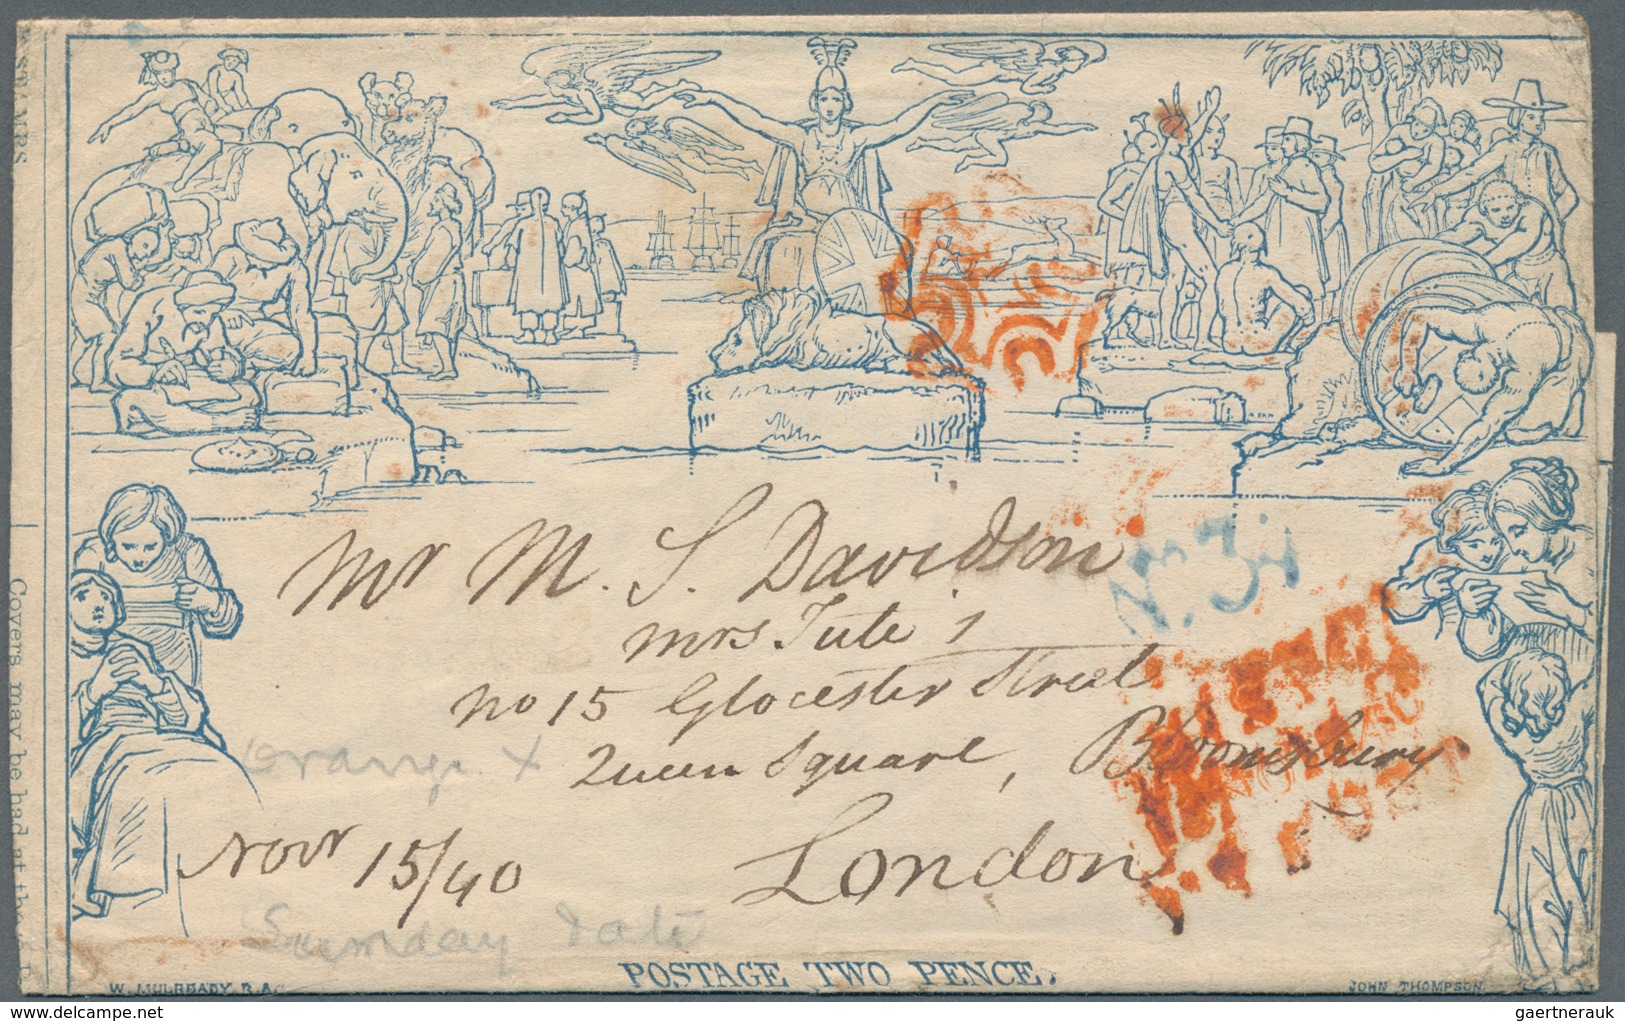 STAMPS
Covers may be had at the
Mr M. S. Davidson
Mrs Tute's
No 15 Glocester Street
Queen Square, Bloomsbury
London
Orange X
Novr 15/40
Sunday date
POSTAGE TWO PENCE.
W. MULREADY, R.A.
JOHN THOMPSON
gaertnerauk / Delcampe.net